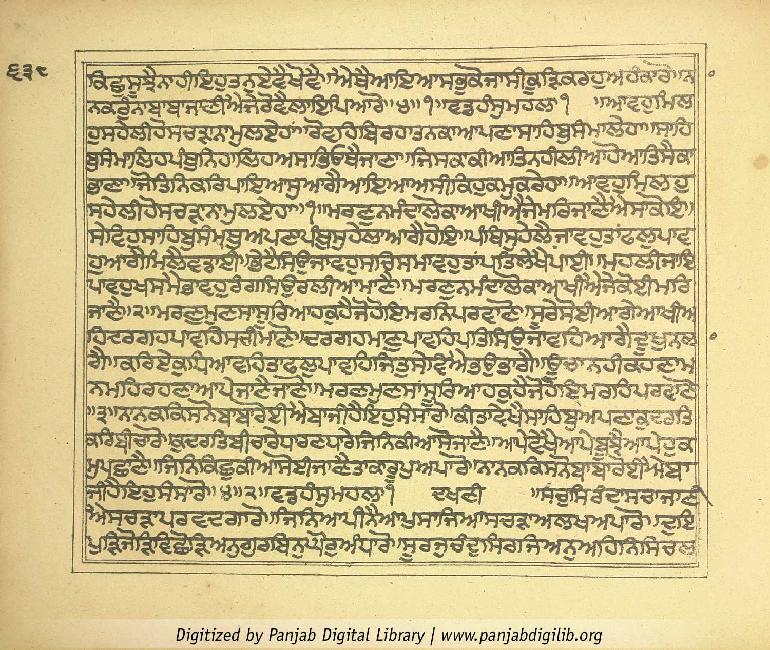 ੬੩੯
ਕਿਛੁਸੂਝੈਨਾਹੀਇਹੁਤਨੁਏਵੈਖੋਵੈ॥ਐਥੈਆਇਆਸਭੁਕੋਜਾਸੀਕੂੜਿਕਰਹੁਅਹੰਕਾਰੋ॥ਨ
ਨਕਰੁੰਨਾਬਾਬਾਜਾਣੀਐਜੇਰੋਵੈਲਾਇਪਿਆਰੋ॥੪॥੧॥ਵਡਹੰਸੁਮਹਲਾ੧ ॥ਆਵਹੁਮਿਲ
ਹੁਸਹੇਲੀਹੋਸਚੜਾਨਾਮੁਲਏਹਾਂ॥ਰੋਵਹਿਬਿਰਹਾਤਨਕਾਆਪਣਾਸਾਹਿਬੁਸੰਮਾਲੇਹਾਂ॥ਸਾਹਿ
ਬੁਸੰਮਾਲਿਹਪੰਥੁਨਿਹਾਲਿਹਅਸਾਭਿਓਥੈਜਾਣਾ॥ਜਿਸਕਾਕੀਆਤਿਨਹੀਲੀਆਹੋਆਤਿਸੈਕਾ
ਭਾਣਾ॥ਜੋਤਿਨਿਕਰਿਪਾਇਆਸੁਆਗੈਆਇਆਅਸੀਕਿਹੁਕਮੁਕਰੇਹਾ॥ਆਵਹੁਮਿਲਹੁ
ਸਹੇਲੀਹੋਸਚੜਾਨਾਮੁਲਏਹਾ॥੧॥ਮਰਣੁਨਮੰਦਾਲੋਕਾਆਖੀਐਜੇਮਰਿਜਾਣੈਐਸਾਕੋਇ॥
ਸੇਵਿਹੁਸਾਹਿਬੁਸੰਮ੍ਰਥੁਆਪਣਾਪੰਥੁਸੁਹੇਲਾਆਗੈਹੋਇ॥ਪੰਥਿਸੁਹੇਲੈਜਾਵਹੁਤਾਂਫਲੁਪਾਵ
ਹੁਆਗੈਮਿਲੈਵਡਾਈ॥ਭੇਟੈਸਿਉਜਾਵਹੁਸਚਿਸਮਾਵਹੁਤਾਂਪਤਿਲੇਖੈਪਾਈ॥ਮਹਲੀਜਾਇ
ਪਾਵਹੁਖਸਮੈਭਾਵਹੁਰੰਗਸਿਉਰਲੀਆਮਾਣੈ॥ਮਰਣੁਨਮੰਦਾਲੋਕਾਆਖੀਐਜੇਕੋਈਮਰਿ
ਜਾਣੈ॥੨॥ਮਰਣੁਮੁਣਸਾਸੂਰਿਆਹਕੁਹੈਜੋਹੋਇਮਰਨਿਪਰਵਾਣੋ॥ਸੂਰੇਸੇਈਆਗੈਆਖੀਅ
ਹਿਦਰਗਹਪਾਵਹਿਸਾਚੀਮਾਣੋ॥ਦਰਗਹਮਾਣੁਪਾਵਹਿਪਤਿਸਿਉਜਾਵਹਿਆਗੈਦੂਖੁਨਲ
ਗੈ॥ਕਰਿਏਕੁਧਿਆਵਹਿਤਾਫਲੁਪਾਵਹਿਜਿਤੁਸੇਵਿਐਭਉਭਾਗੈ॥ਊਚਾਨਹੀਕਹਣਾਮ
ਨਮਹਿਰਹਣਾਆਪੇਜਾਣੈਜਾਣੋ॥ਮਰਣੁਮੁਣਸਾਂਸੂਰਿਆਹਕੁਹੈਜੋਹੋਇਮਰਹਿਪਰਵਾਣੋ
॥੩॥ਨਾਨਕਕਿਸਨੋਬਾਬਾਰੋਈਐਬਾਜੀਹੈਇਹੁਸੰਸਾਰੋ॥ਕੀਤਾਵੇਖੈਸਾਹਿਬੁਆਪਣਾਕੁਦਰਤਿ
ਕਰੇਬੀਚਾਰੋ॥ਕੁਦਰਤਿਬੀਚਾਰੇਧਾਰਣਧਾਰੇਜਿਨਿਕੀਆਸੋਜਾਣੈ॥ਆਪੇਵੇਖੈਆਪੇਬੂਝੈਆਪੇਹੁਕ
ਮੁਪਛਾਣੈ॥ਜਿਨਿਕਿਛੁਕੀਆਸੋਈਜਾਣੈਤਾਕਾਰੂਪੁਅਪਾਰੋ॥ਨਾਨਕਕਿਸਨੋਬਾਬਾਰੋਈਐਬਾ
ਜੀਹੈਇਹੁਸੰਸਾਰੋ॥੪॥੨॥ਵਡਹੰਸੁਮਹਲਾ੧ ਦਖਣੀ ॥ਸਚੁਸਿਰੰਦਾਸਚਾਜਾਣੀ
ਐਸਚੜਾਪਰਵਦਗਾਰੋ॥ਜਿਨਿਆਪੀਨੈਆਪੁਸਾਜਿਆਸਚੜਾਅਲਖਅਪਾਰੋ॥ਦੁਇ
ਪੁੜਜੋੜਿਵਿਛੋੜਿਅਨੁਗੁਰਬਿਨੁਘੋਰੁਅੰਧਾਰੋ॥ਸੂਰਜੁਚੰਦੁਸਿਰਜਿਅਨੁਅਹਿਨਿਸਿਚਲ
Digitized by Panjab Digital Library | www.panjabdigilib.org